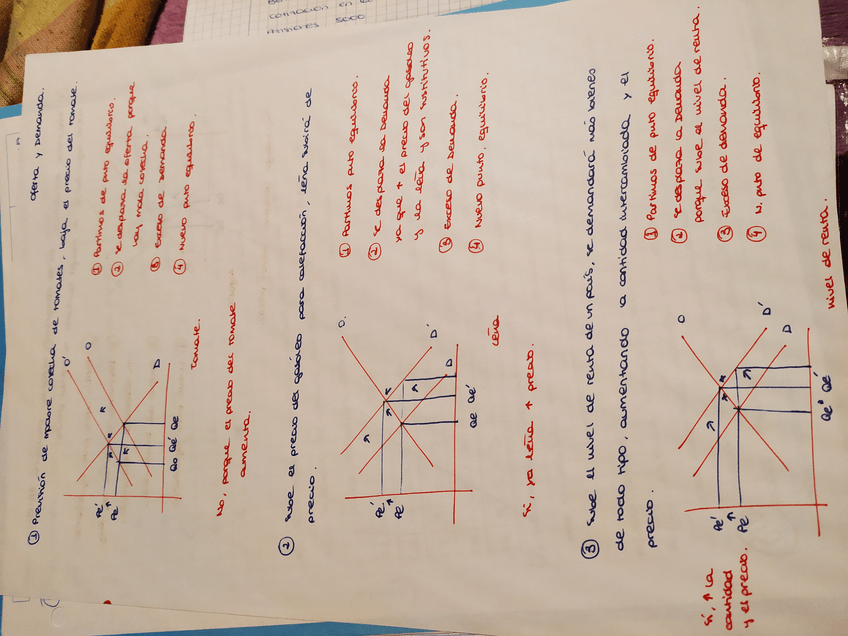 oferta y Demanda.
① Previsión de mpadre cosecha de tomates, baja el precio del tomate.
① Partimos de pnto equilibrio.
② se desplaza la oferta porque
hay mala cosecha.
③ Exceso de Demanda
④ Nuevo pnto equilibrio.
O'
O
D
Pe'
Pe
Qo Qe' Qe
Tomate.
No, porque el precio del tomate
aumenta.
② Sube el precio del gasóleo para calefacción, leña subirá de
precio.
① Partimos pnto equilibrio.
② se desplaza la Demanda
ya que ↑ el precio del gasóleo
y la leña y son sustitutivos.
③ Exceso de Demanda.
④ Nuevo punto, equilibrio.
O.
D'
D
Pe'
Pe
Qe Qe'
Leña
Sí, ya leña ↑ precio.
③ Sube el nivel de renta de un país, se demandará más bienes
de todo tipo, aumentando la cantidad intercambiada y el
precio.
① Partimos de pnto equilibrio.
② se desplaza la Demanda
porque sube el nivel de renta.
③ Exceso de demanda.
④ N. pnto de equilibrio.
O
D'
D
Pe'
Pe
Qe' Qe'
nivel de renta.
Sí, ↑ la
cantidad
y el precio.
5000